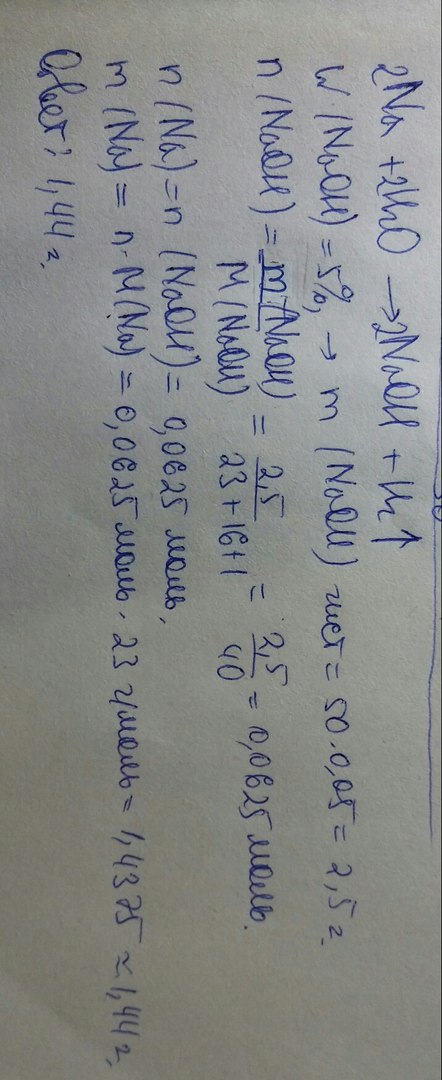 2Na + 2H₂O → 2NaOH + H₂↑
W (NaOH) = 5%, → m (NaOH) чист = 50·0,05 = 2,5 г.
n (NaOH) = m(NaOH) / M(NaOH) = 2,5 / 23+16+1 = 2,5 / 40 = 0,0625 моль.
n (Na) = n (NaOH) = 0,0625 моль.
m (Na) = n·M(Na) = 0,0625 моль · 23 г/моль = 1,4375 ≈ 1,44 г.
Ответ: 1,44 г.